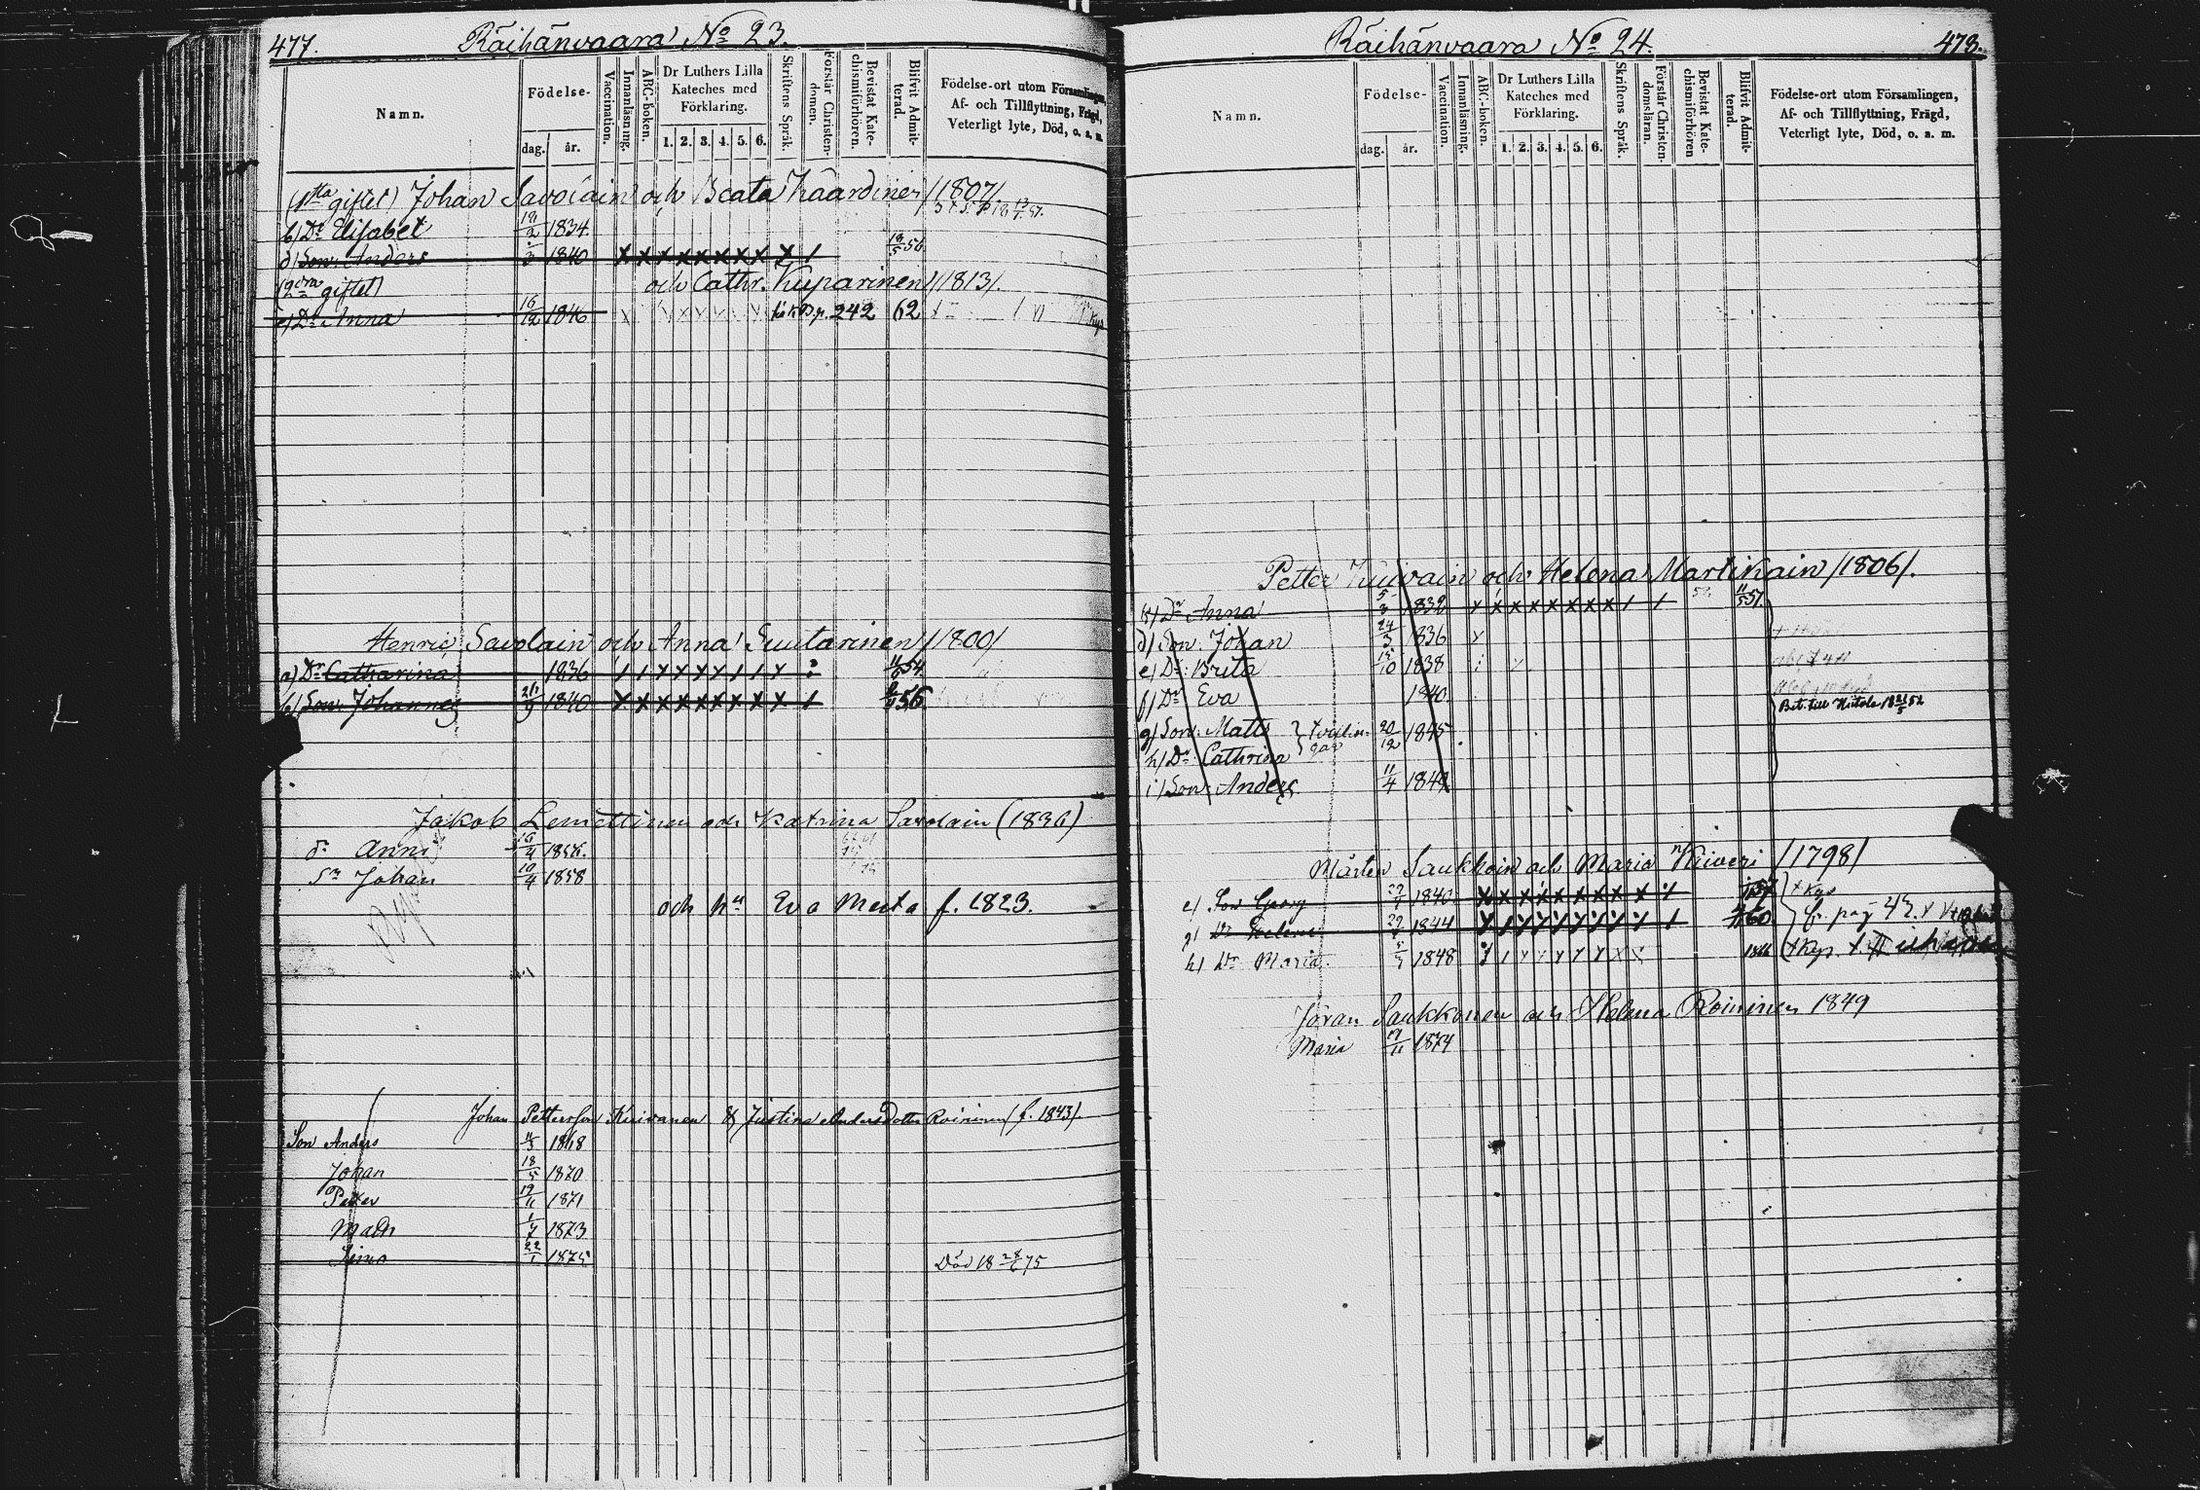 477. Räihänvaara No 23.
Namn.
Födelse-
dag. år.
Vaccination.
Innanläsning.
ABC-boken.
Dr Luthers Lilla Kateches med Förklaring.
1. 2. 3. 4. 5. 6.
Skriftens Språk.
Förstår Christen-domen.
Bevistat Kate-chismiförhören.
Blifvit Admit-terad.
Födelse-ort utom Församlingen,
Af- och Tillflyttning, Frägd,
Veterligt lyte, Död, o. s. m.
(1sta giftet) Johan Savolain och Beata Kaardinen /1807/
b) Dr Elisabet 19/2 1834.
d) Son Anders 3 1840 x x x x x x x x x / 18/5 56
(2dra giftet) och Cathr. Kuparinen /1813/.
e) Dr Anna 16/12 1846 p. 242 62
Henric Savolain och Anna Suutarinen /1800/
a) Dr Catharina 1836 54
b) Son Johannes 1840 x x x x x x x x x / 56
Jakob Lemettinen och Katrina Savolain (1836)
dr Anna 16/4 1856.
Sn Johan 10/4 1858
och hu Eva Meuta f. 1823.
Johan Pettersson Kuivanen & Justina Andersdotter Roininen (f. 1843).
Son Anders 4/3 1868
Johan 18/5 1870
Petter 19/11 1871
Math 1/7 1873
Simo 22/1 1875 Död 18 28/6 75
Räihänvaara No 24. 478.
Namn.
Födelse-
dag. år.
Vaccination.
Innanläsning.
ABC-boken.
Dr Luthers Lilla Kateches med Förklaring.
1. 2. 3. 4. 5. 6.
Skriftens Språk.
Förstår Christen-domsläran.
Bevistat Kate-chismiförhören
Blifvit Admit-terad.
Födelse-ort utom Församlingen,
Af- och Tillflyttning, Frägd,
Veterligt lyte, Död, o. s. m.
Petter Kuivain och Helena Martikain /1806/.
Dr Anna 5/3 1832 x x x x x x x x / / 57
d) Son Johan 24/3 1836
e) Dr Brita 15/10 1838
f) Dr Eva 1840.
Bet. till Hiitola 18 52
g) Son Matts } tvillin-
h) Dr Cathrina } gar 20/12 1845
i) Son Anders 11/4 1849
Mårten Saukkoin och Maria Kiiveri /1798/
e) Son Georg 1840 x x x x x x x x x
g) Dr Helena 29 1844 60 fr. pag 42.
h) Dr Maria. 5 1848 1866
Jöran Saukkonen och Helena Roininen 1849
Maria 19/11 1874